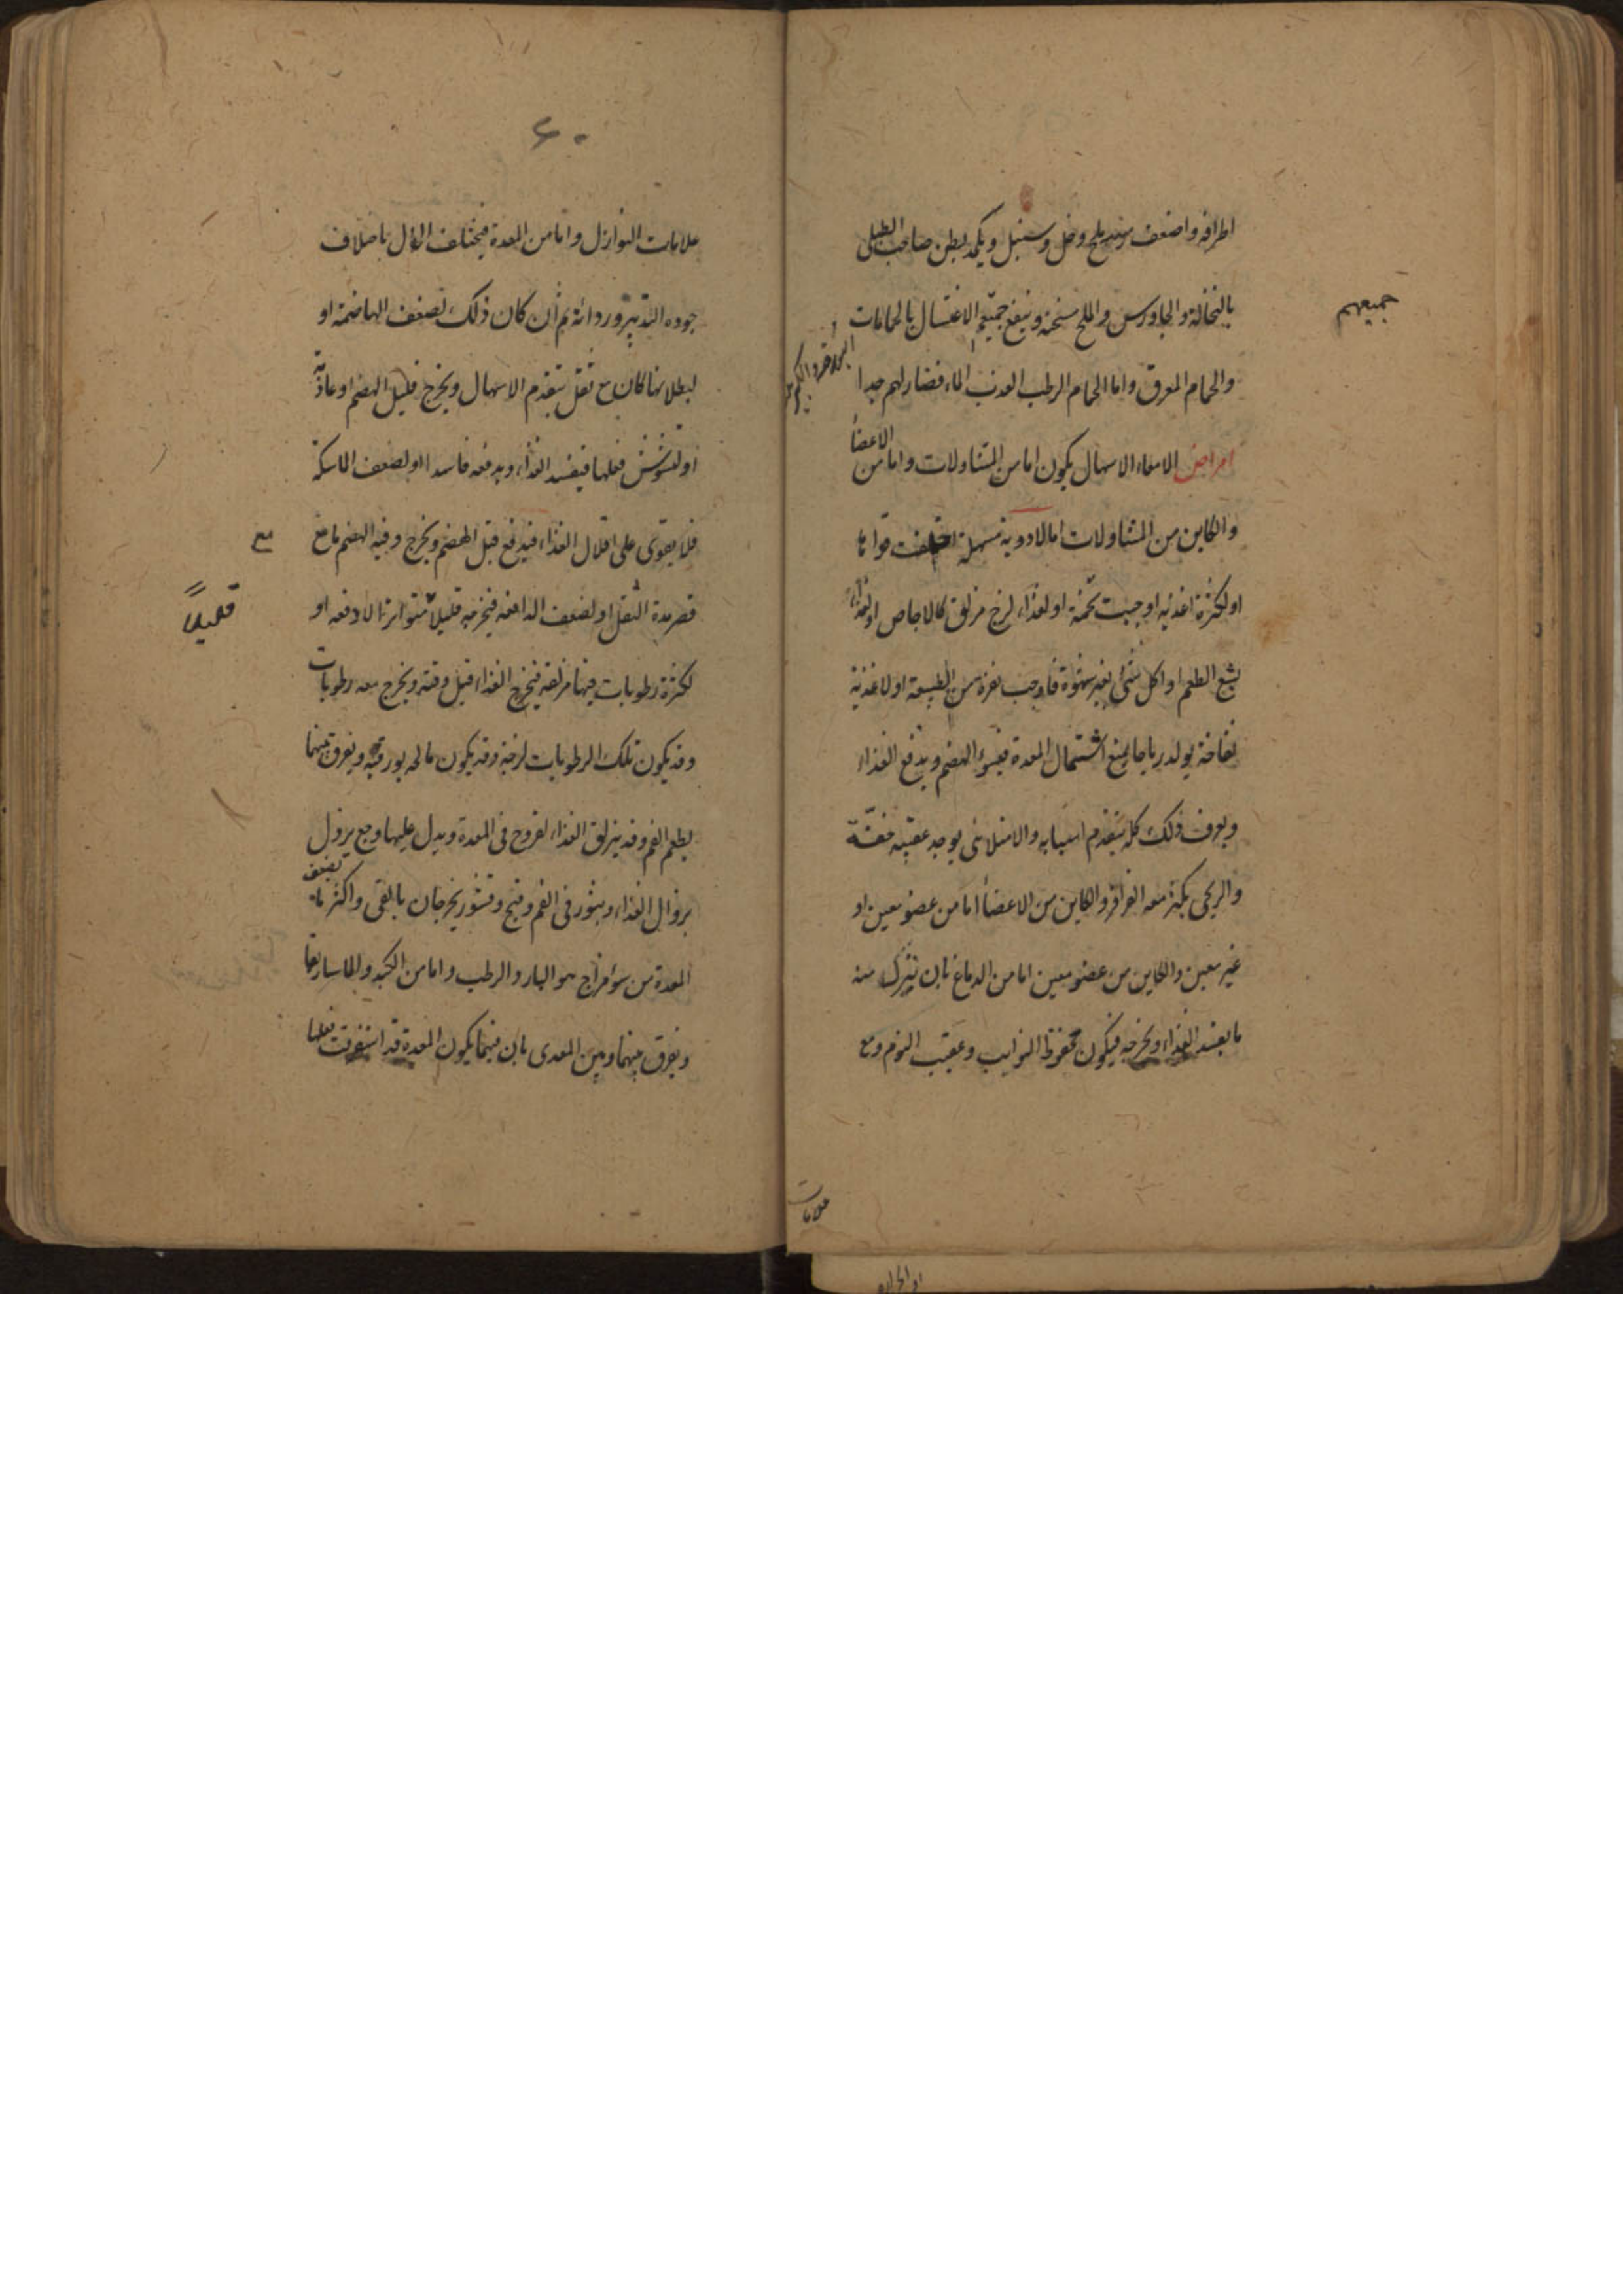 اطرافه واضعف بملح وخل وسنبل ويكمد بطن صاحب الطبلى
بالنخالة والجاورس والملح مسخنة وينفع جميع الاغتسال بالحمامات
جميعهم
والحمام المعرق واما الحمام الرطب العذب الماء فضار لهم جدا
امراض الامعاء الاسهال يكون اما من المتناولات واما من الاعضأ
والكاين من المتناولات اما لادوية مسهلة اختلفت قواتها
او لكثرة اغذية اوجبت تخمة او لغذاء لزج مزلق كالاجاص او لغذاء
بشع الطعم او اكل شئ بغير شهوة فاوجب نفرة من الطبيعة او لاغذية
نفاخة يولد رياحا يمنع اشتمال المعدة فيسوء الهضم ويدفع الغذاء
ويعرف ذلك كله بتقدم اسبابه والامتلائى يوجد عقيبه خفة
والريحى يكثر معه القراقر والكاين من الاعضأ اما من عضو معين او
غير معين والكاين من عضو معين اما من الدماغ بان ينزل منه
ما يفسد الغذاء ويخرجه فيكون محفوظ النوايب وعقيب النوم ومع
علامات
٦٠
علامات النوازل واما من المعدة فيختلف الحال باختلاف
جوده التدبير وردائة ثم ان كان ذلك لضعف الهاضمة او
لبطلانها كان مع ثقل يتقدم الاسهال ويخرج قليل الهضم او عادمة
او لتشوش فعلها فيفسد الغذاء ويدفعه فاسدا او لضعف الماسكة
فلا يقوى على اقلال الغذاء فيدفع قبل الهضم ويخرج وفيه الهضم ما مع
مع
قصر مدة الثقل او لضعف الدافعه فيخرجه قليلا متواترا لا دفعه او
قليلاً
لكثرة رطوبات فيها مزلقه فيخرج الغذاء قبل وقته ويخرج معه رطوبات
وقد يكون تلك الرطوبات لزجة وقد يكون مالحه بورقيه ويفرق بينهما
بطعم الفم وقد ينزلق الغذاء لقروح فى المعدة ويدل عليها وجع يزول
بزوال الغذاء وبثور فى الفم وقيح وقشور يخرجان بالقى واكثر ما يضعف
المعدة من سوء مزاج هو البارد والرطب واما من الكبد والماساريقا
ويفرق بينهما وبين المعدى بان فيهما يكون المعدة قد استوفت فعلها